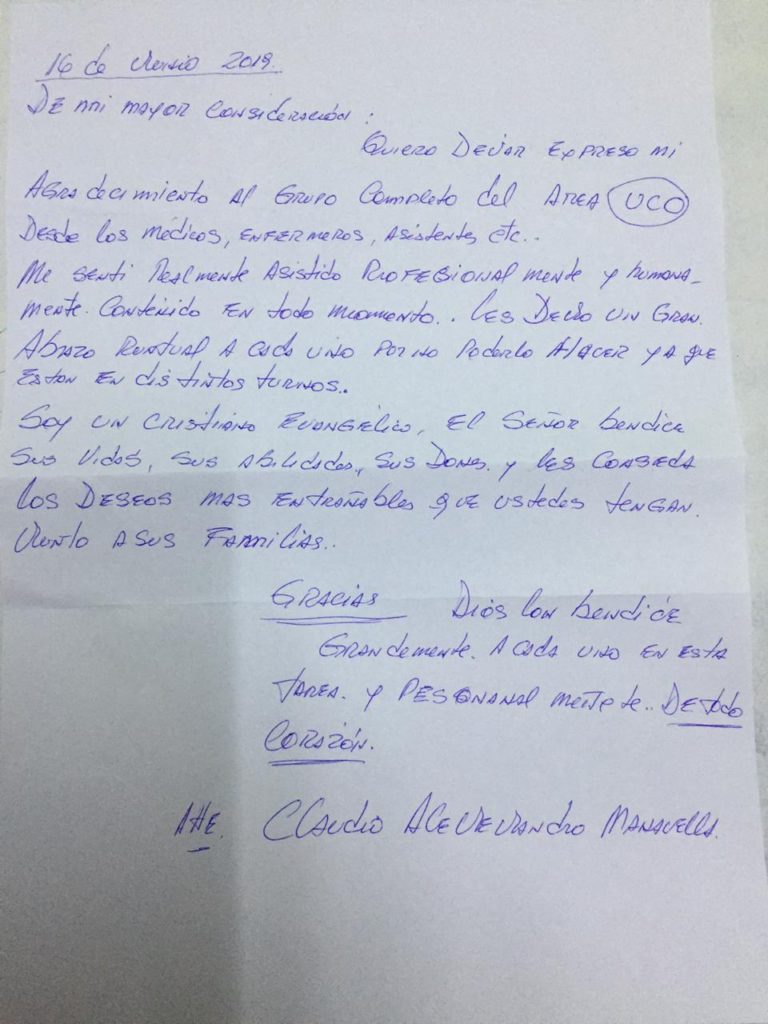 16 de Junio 2019
DE mi mayor consideración:
Quiero Dejar Expreso mi
Agradecimiento al Grupo Completo del Area UCO
Desde los médicos, enfermeros, asistentes etc..
Me senti Realmente Asistido Profesional mente y humana_
mente. Contenido en todo momento.. les Dejo un Gran.
Abrazo Puntual a cada uno por no poderlo Hacer ya que
estan en distintos turnos..
Soy un cristiano Evangélico, El Señor bendice
sus vidas, sus abilidades, sus Dones. y les conseda
los Deseos mas entrañables que ustedes tengan.
Junto a sus Familias..
Gracias Dios lon bendice
Grandemente. A cada uno en esta
tarea. y pesonanal mente.. De todo
Corazón.
Atte. Claudio Alejandro Manavella.